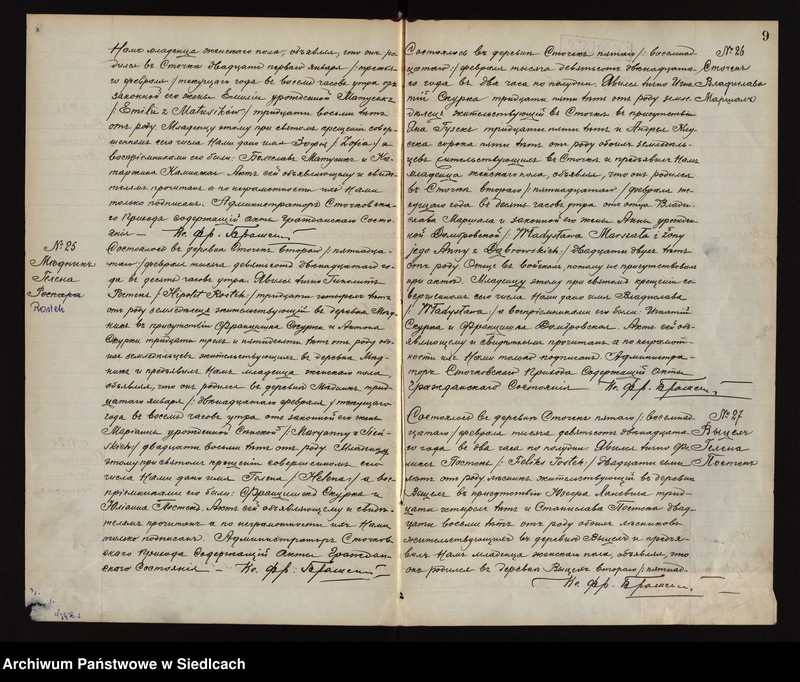 9
Намъ младенца женскаго пола, объявляя, что онъ ро-
дился въ Сточкѣ двадцать перваго января /: третья-
го февраля :/ текущаго года въ восемь часовъ утра отъ
законной его жены Емиліи урожденной Матусякъ
/: Emilii z Matusików :/ тридцати восьми лѣтъ
отъ роду. Младенцу этому при святомъ крещеніи совер-
шенномъ сего числа Нами дано имя Зофія /: Zofja :/ а
воспріемниками его были: Болеславъ Матусякъ и Ка-
таржина Калинская. Актъ сей объявляющему и свидѣ-
телямъ прочитанъ а по неграмотности ихъ Нами
только подписанъ. Администраторъ Сточковска-
го Прихода содержащій акты гражданскаго Состо-
янія — Кс. Фр.
№ 25
Гелена
Rostek
Состоялось въ деревнѣ Сточкѣ втораго /: пятнадца-
таго :/ февраля тысяча девятьсотъ двѣнадцатаго го-
да въ десять часовъ утра. Явился лично Гиполитъ
Ростекъ /: Hipolit Rostek :/ тридцати четырехъ лѣтъ
отъ роду земледѣлецъ жительствующій въ деревнѣ
въ присутствіи Францишка Скурки и Антона
Скурки тридцати трехъ и пятидесяти лѣтъ отъ роду обо-
ихъ земледѣльцевъ жительствующихъ въ деревнѣ
и предъявилъ Намъ младенца женскаго пола,
объявляя, что онъ родился въ деревнѣ трид-
цатаго января /: двѣнадцатаго февраля :/ текущаго
года въ восемь часовъ утра отъ законной его жены
Маріанны урожденной /: Maryanny z
:/ двадцати восьми лѣтъ отъ роду. Младенцу
этому при святомъ крещеніи совершенномъ сего
числа Нами дано имя Гелена /: Helena :/ а вос-
пріемниками его были: Францишекъ Скурка и
Юліанна. Актъ сей объявляющему и свидѣ-
телямъ прочитанъ а по неграмотности ихъ Нами
только подписанъ. Администраторъ Сточков-
скаго Прихода Содержащій Акты Граждан-
скаго Состоянія — Кс. Фр.
№ 26
Сточекъ
Владислава
Маршалъ
Состоялось въ деревнѣ Сточкѣ пятаго /: восемнад-
цатаго :/ февраля тысяча девятьсотъ двѣнадцата-
го года въ два часа по полудни. Явился лично Игна-
тій Скурка тридцати пяти лѣтъ отъ роду земле-
дѣлецъ жительствующій въ Сточкѣ въ присутствіи
Яна тридцати пяти лѣтъ и Андрея
сорока пяти лѣтъ отъ роду обоихъ земледѣль-
цевъ жительствующихъ въ Сточкѣ и предъявилъ Намъ
младенца женскаго пола, объявляя, что онъ родился
въ Сточкѣ втораго /: пятнадцатаго :/ февраля те-
кущаго года въ десять часовъ утра отъ отца Влади-
слава Маршала и законной его жены Анны урожден-
ной Домбровской /: Władysława Marszała i żony
jego Anny z Dąbrowskich :/ двадцати двухъ лѣтъ
отъ роду. Отецъ въ войскѣ, потому не присутствовалъ
при актѣ. Младенцу этому при святомъ крещеніи со-
вершенномъ сего числа Нами дано имя Владислава
/: Władysława :/ а воспріемниками его были: Игнатій
Скурка и Францишка Домбровская. Актъ сей объ-
являющему и свидѣтелямъ прочитанъ, а по неграмот-
ности ихъ Нами только подписанъ. Администра-
торъ Сточковскаго Прихода Содержащій Акты
Гражданскаго Состоянія Кс. Фр.
№ 27
Гелена
Состоялось въ деревнѣ Сточкѣ пятаго /: восемнад-
цатаго :/ февраля тысяча девятьсотъ двѣнадцата-
го года въ два часа по полудни. Явился лично Фе-
ликсъ /: Feliks :/ двадцати семи
лѣтъ отъ роду жительствующій въ деревнѣ
въ присутствіи трид-
цати четырехъ лѣтъ и Станислава двад-
цати восьми лѣтъ отъ роду обоихъ
жительствующихъ въ деревнѣ и предъя-
вилъ Намъ младенца женскаго пола, объявляя, что
онъ родился въ деревнѣ втораго /: пятнад-
Кс. Фр.
Archiwum Państwowe w Siedlcach